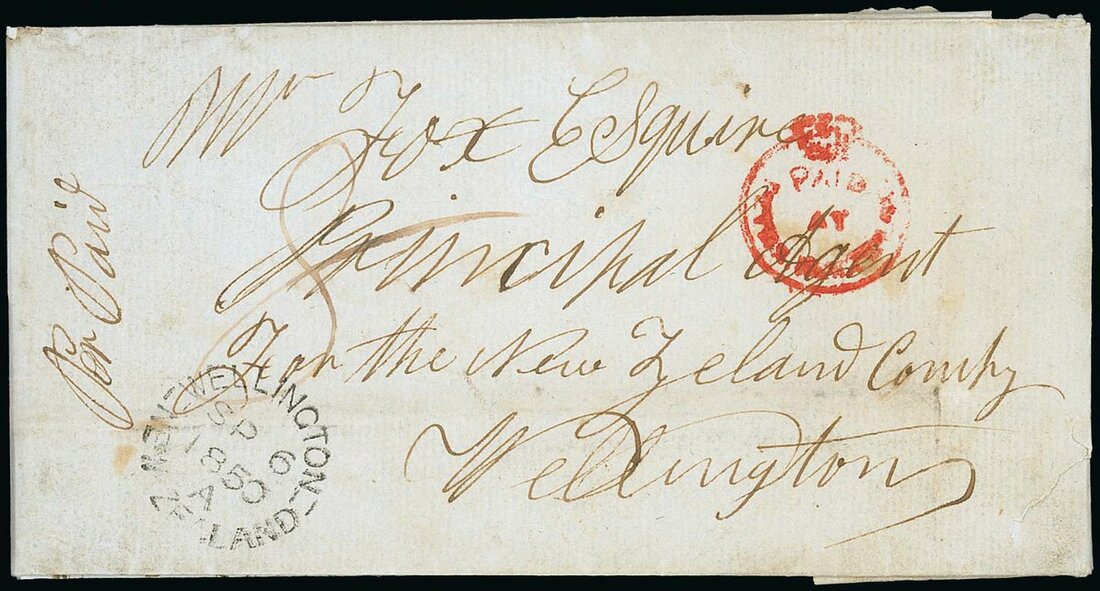 Mr Fox Esquire
Principal Agent
For the New Zeland Compy
Wellington
Per Paid
PAID
AT
WELLINGTON
NEW ZEALAND
SP 6
1850
A